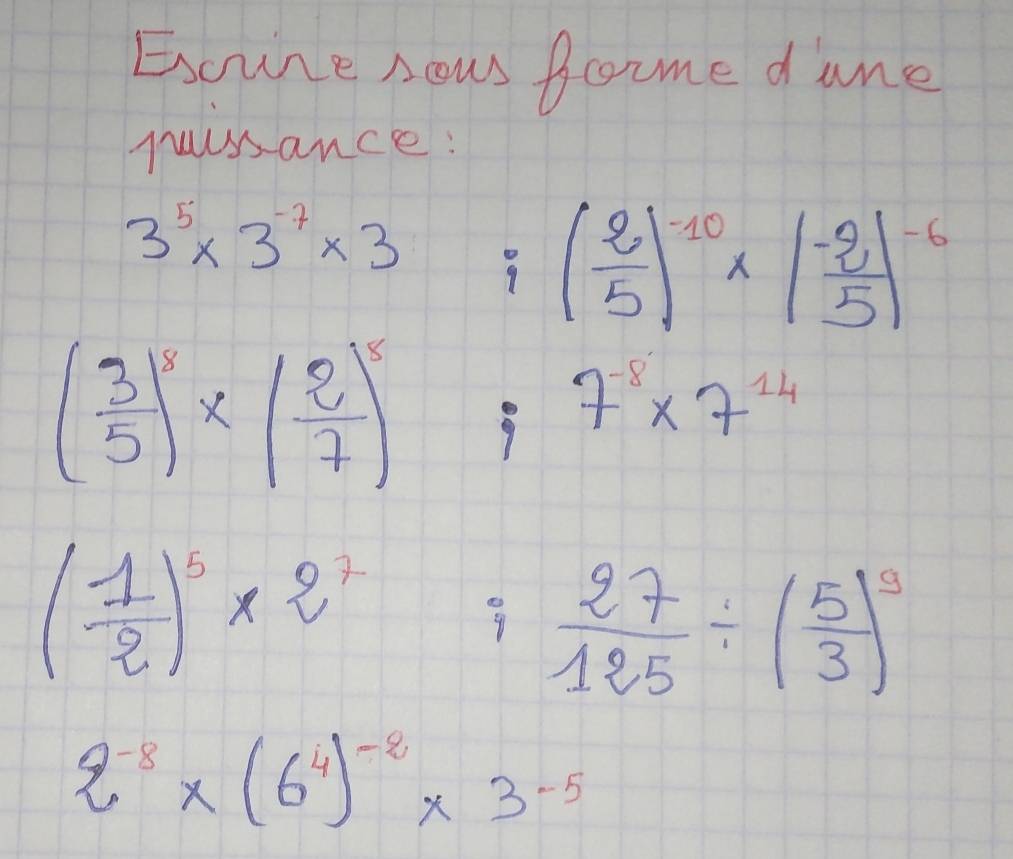 Escrire sous forme d'une
puissance:
3^5 × 3^-7 × 3 ; (2/5)^-10 × (-2/5)^-6
(3/5)^8 × (2/7)^8 ; 7^-8 × 7^14
(1/2)^5 × 2^7 ; 27/125 ÷ (5/3)^9
2^-8 × (6^4)^-2 × 3^-5